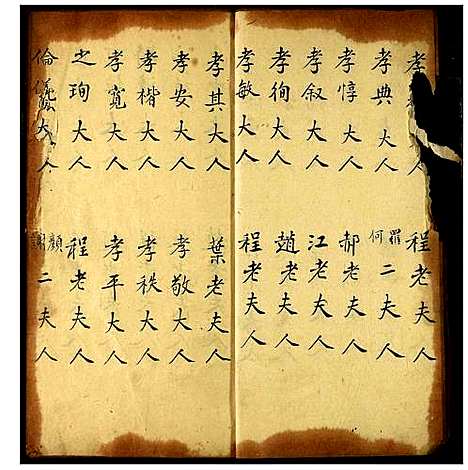 孝
孝典大人
孝惇大人
孝叙大人
孝徇大人
孝敏大人
程老夫人
羅何二夫人
郝老夫人
江老夫人
趙老夫人
程老夫人
孝其大人
孝安大人
孝楷大人
孝寬大人
之珣大人
倫儀大人
葉老夫人
孝敬大人
孝秩大人
孝平大人
程老夫人
顏謝二夫人